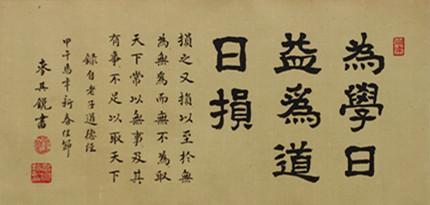 為學日
益爲道
日損
損之又損以至於無
為無為而無不為取
天下常以無事及其
有事不足以取天下
錄自老子道德經
甲午馬年新春佳節
麥其銳書